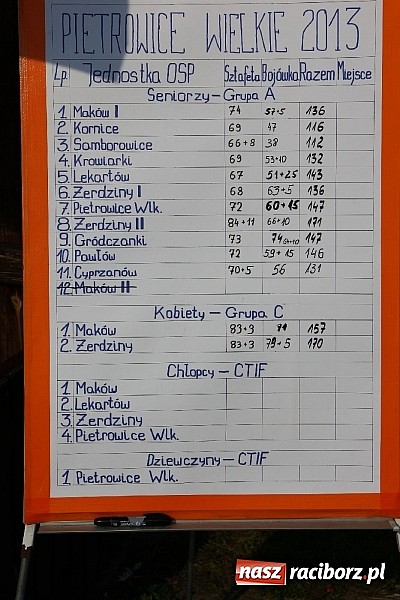 PIETROWICE WIELKIE 2013
Lp Jednostka OSP Sztafeta Bojówka Razem Miejsce
Seniorzy - Grupa A
1. Maków I 74 57+5 136
2. Kornice 69 47 116
3. Samborowice 66+8 38 112
4. Krowiarki 69 53+10 132
5. Lekartów 67 51+25 143
6. Żerdziny I 68 63+5 136
7. Pietrowice Wlk. 72 60+15 147
8. Żerdziny II 84+11 66+10 171
9. Gródczanki 73 74 147
10. Pawłów 72 59+15 146
11. Cyprzanów 70+5 56 131
12. Maków II
Kobiety - Grupa C
1. Maków 83+3 157
2. Żerdziny 83+3 79+5 170
Chłopcy - CTIF
1. Maków
2. Lekartów
3. Żerdziny
4. Pietrowice Wlk.
Dziewczyny - CTIF
1. Pietrowice Wlk.
nasz raciborz.pl